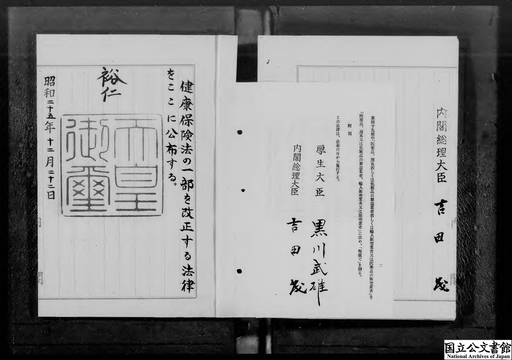 内閣総理大臣 吉田茂
附則
この法律は、公布の日から施行する。
厚生大臣 黒川武雄
内閣総理大臣 吉田茂
健康保険法の一部を改正する法律
をここに公布する。
裕仁
天皇
御璽
昭和二十五年十二月二十二日
国立公文書館
National Archives of Japan